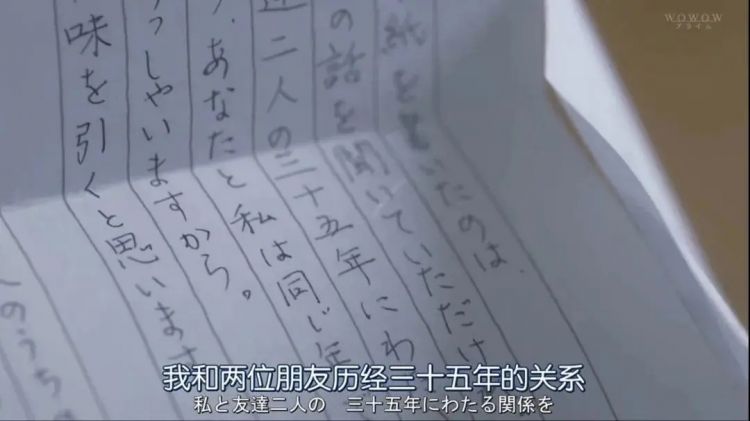 WOWOW
プライム
紙を書いたのは、
の話を聞いていただけ
二人の三十五年にわ
、あなたと私は同じ年
っしゃいますから。
味を引くと思います
のうち
我和两位朋友历经三十五年的关系
私と友達二人の 三十五年にわたる関係を